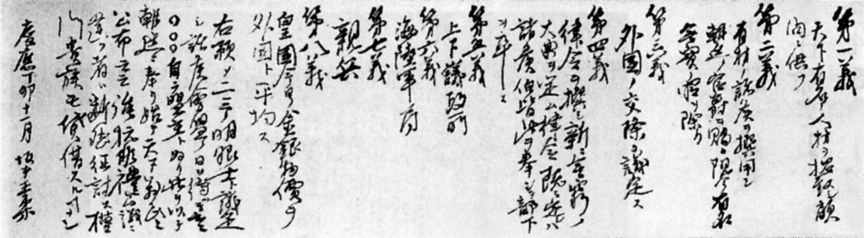 第一義
天下有名ノ人材を招致し顧
問に供フ
第二義
有材ノ諸侯ヲ撰用シ
朝廷ノ官爵ヲ賜ヒ現今有名
無實ノ官ヲ除ク
第三義
外国ノ交際ヲ議定ス
第四義
律令ヲ撰し新ニ無窮ノ
大典ヲ定ム律令既ニ定レハ
諸侯伯皆此ヲ奉シテ部下
ヲ率ユ
第五義
上下議政所
第六義
海陸軍局
第七義
親兵
第八義
皇國今日ノ金銀物價ヲ
外国ト平均ス
右預メ二三ノ明眼士ト議定
シ諸侯會盟ノ日ヲ待ツテ云云
〇〇〇自ラ盟主ト為リ此ヲ以テ
朝廷ニ奉リ始テ天下萬民ニ
公布云云強抗非禮公議ニ
違フ者ハ断然征討ス權
門貴族モ貸借スルナシ
慶應丁卯十一月 坂本直柔